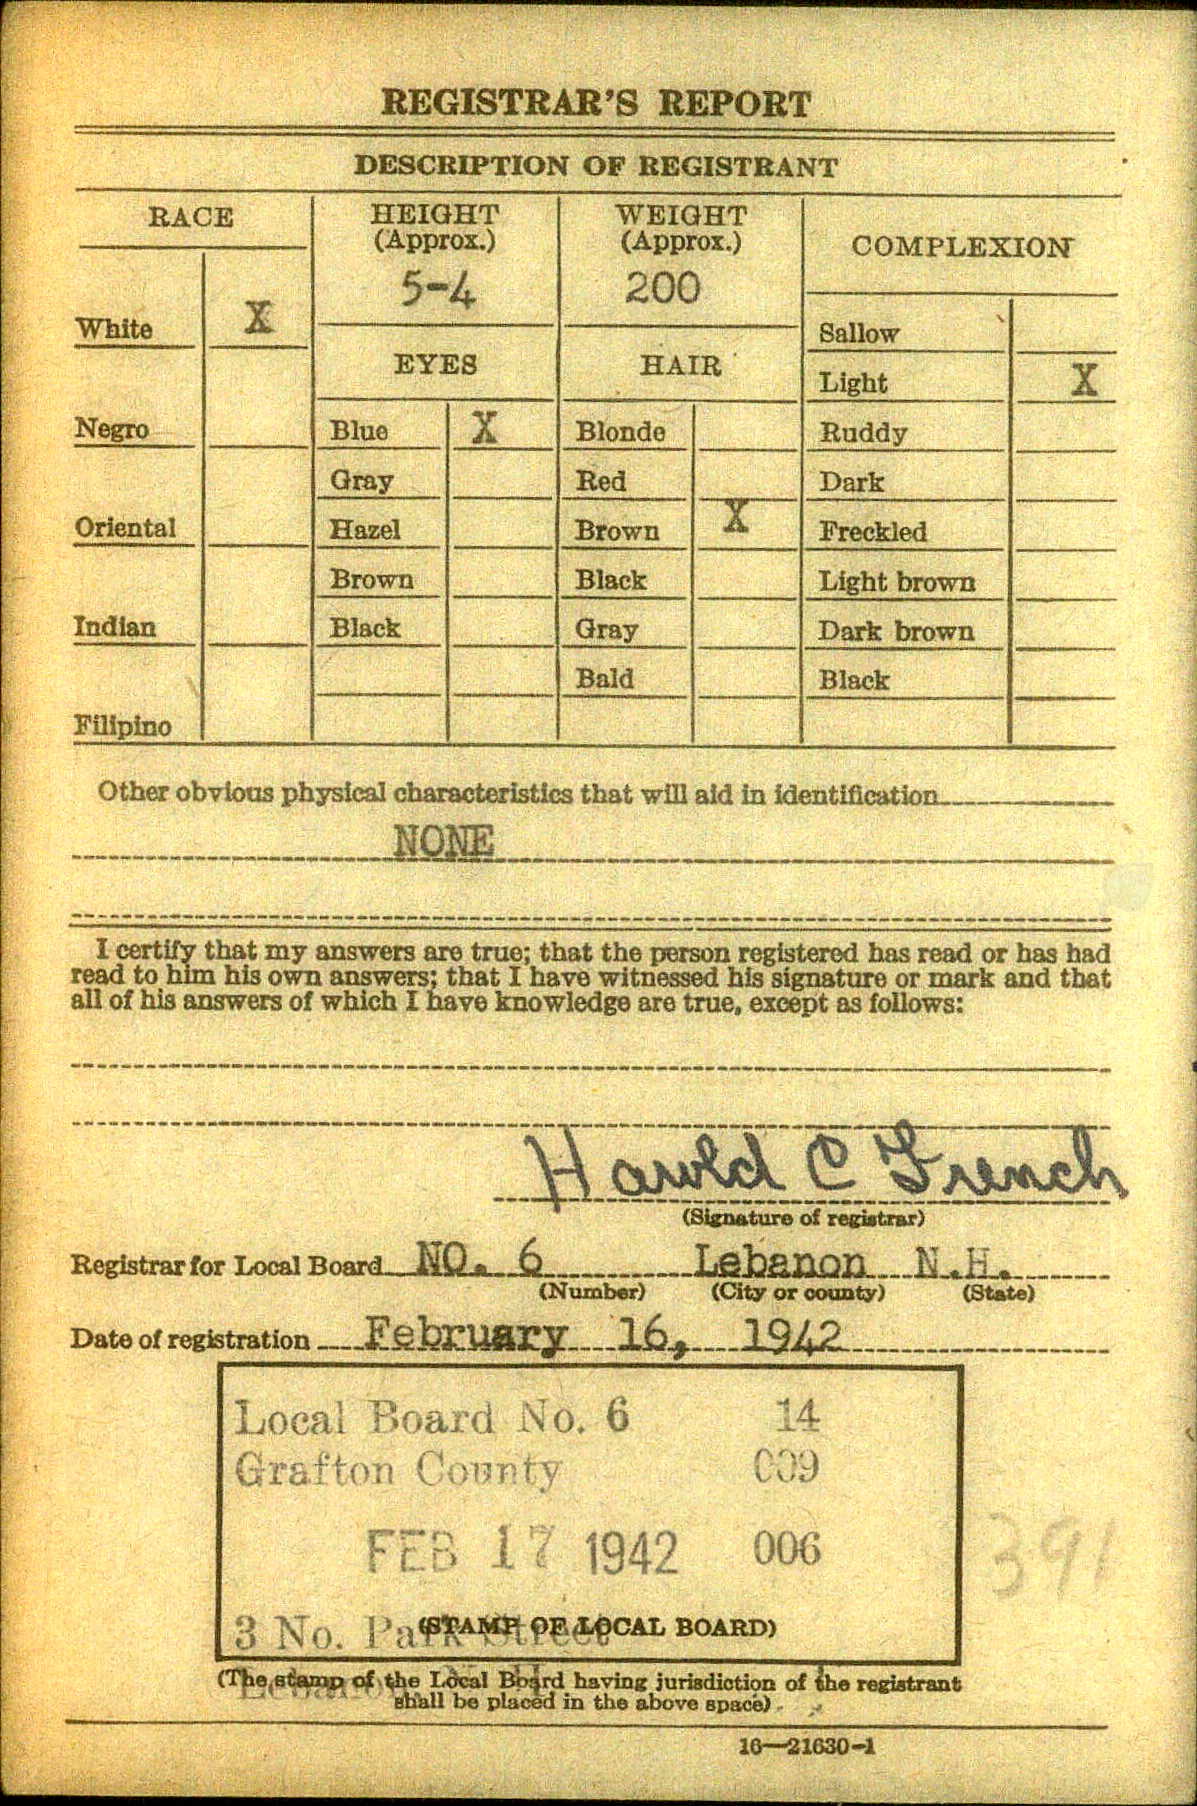 REGISTRAR'S REPORT
DESCRIPTION OF REGISTRANT
RACE
HEIGHT
(Approx.)
5-4
WEIGHT
(Approx.)
200
COMPLEXION
White X
EYES
HAIR
Sallow
Light X
Negro
Blue X
Blonde
Ruddy
Gray
Red
Dark
Oriental
Hazel
Brown X
Freckled
Brown
Black
Light brown
Indian
Black
Gray
Dark brown
Bald
Black
Filipino
Other obvious physical characteristics that will aid in identification
NONE
I certify that my answers are true; that the person registered has read or has had
read to him his own answers; that I have witnessed his signature or mark and that
all of his answers of which I have knowledge are true, except as follows:
Harold C French
(Signature of registrar)
Registrar for Local Board NO. 6 Lebanon N.H.
(Number) (City or county) (State)
Date of registration February 16, 1942
Local Board No. 6 14
Grafton County 009
FEB 17 1942 006
3 No. Park Street
(STAMP OF LOCAL BOARD)
Lebanon
(The stamp of the Local Board having jurisdiction of the registrant
shall be placed in the above space)
391
16—21630-1